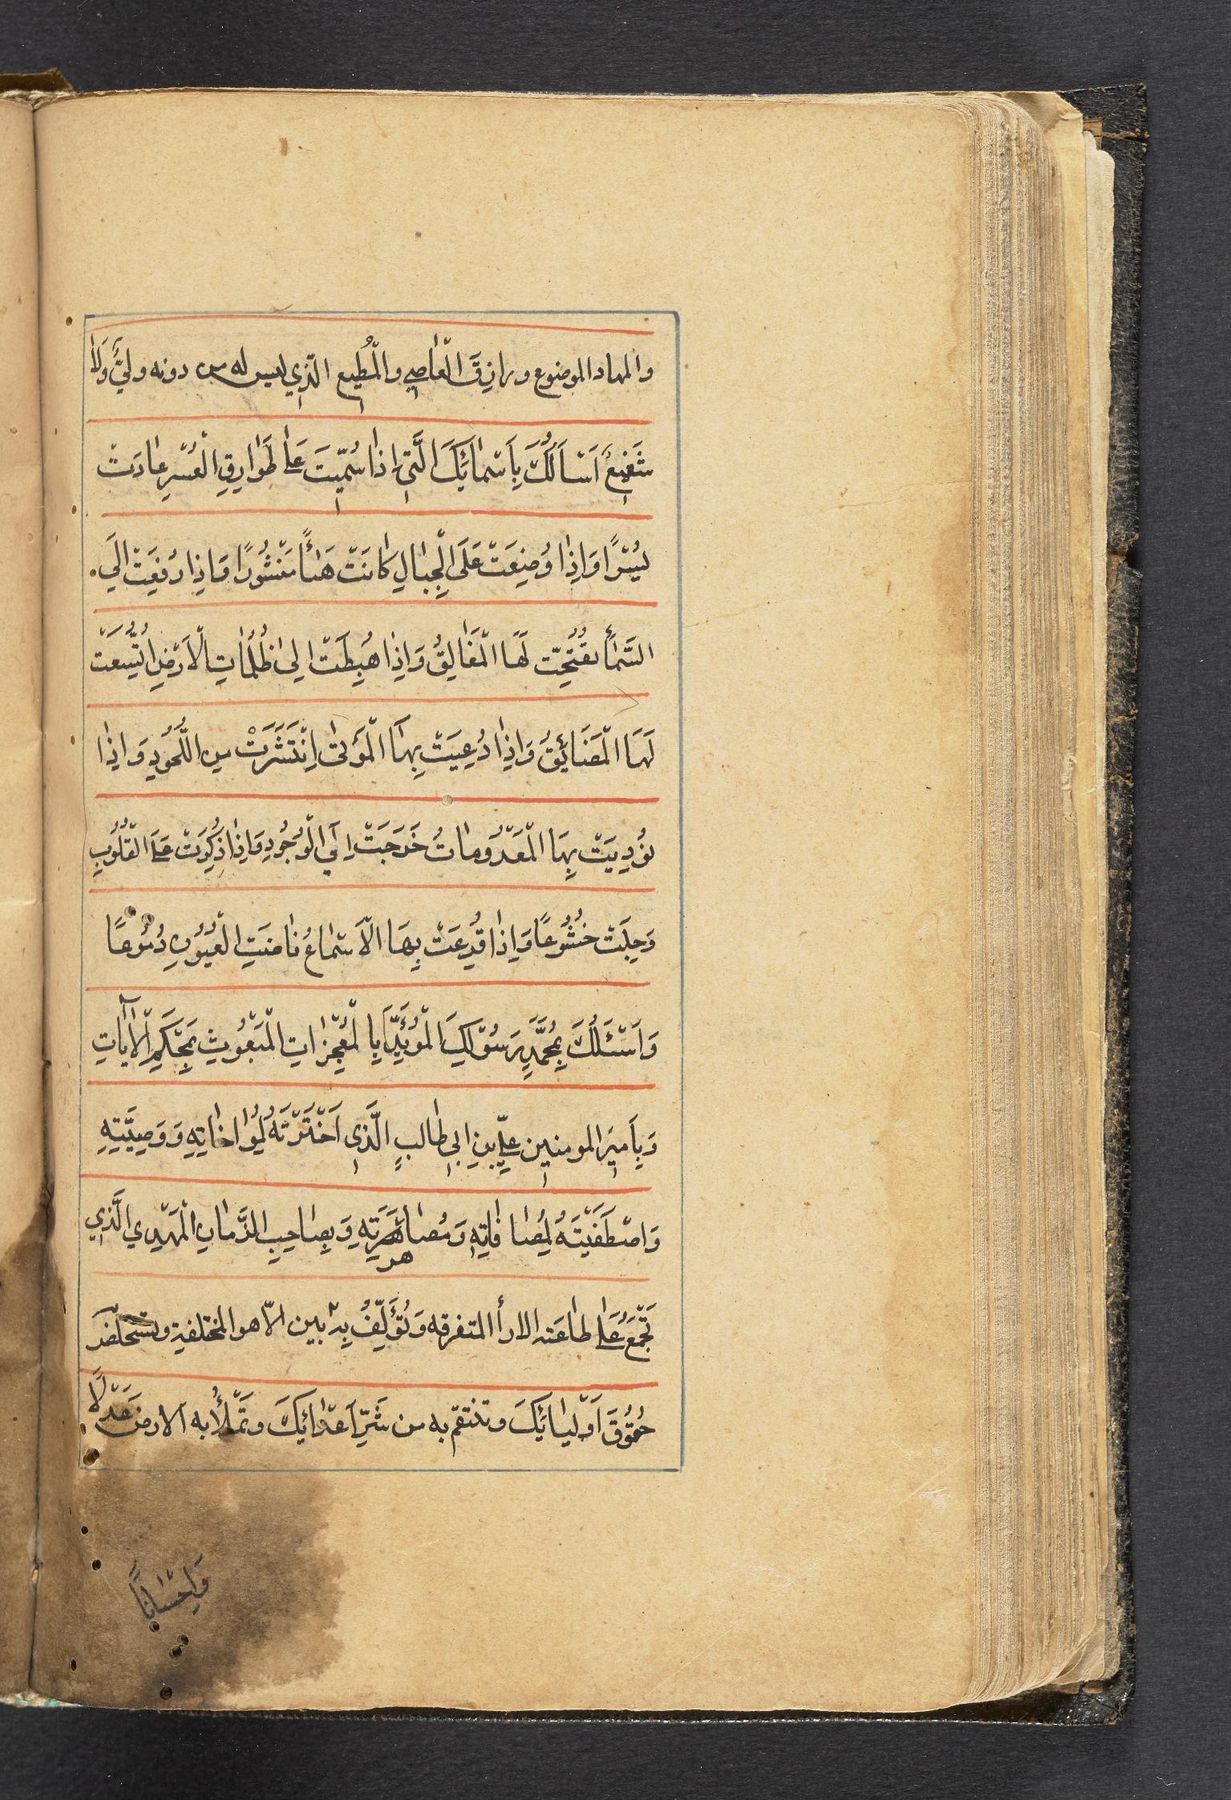 والمهاد الموضوع ورازِقَ الْعاصِي والْمُطيع الّذي ليس له من دونه وليٌّ وَلا
شَفيعٌ اَسْاَلُكَ بِاَسْمائِكَ الَّتي اِذا سُمِّيَتْ عَلى طَوارِقِ الْعُسْرِ عادَتْ
يُسْرًا وَاِذا وُضِعَتْ عَلَى الْجِبالِ كانَتْ هَباءً مَنْثُورًا وَاِذا رُفِعَتْ اِلَى
السَّماءِ تَفَتَّحَتْ لَهَا الْمَغالِقُ وَاِذا هُبِطَتْ اِلى ظُلُماتِ الْاَرْضِ اتَّسَعَتْ
لَهَا الْمَضَائِقُ وَاِذا دُعِيَتْ بِهَا الْمَوْتى اِنْتَشَرَتْ مِن اللُّحُودِ وَاِذا
نُودِيَتْ بِهَا الْمَعْدُوماتُ خَرَجَتْ اِلَى الْوُجُودِ وَاِذا ذُكِرَتْ عَلَى الْقُلُوبِ
وَجِلَتْ خُشُوعًا وَاِذا قُرِعَتْ بِهَا الْاَسْماعُ فاضَتِ الْعُيُونُ دُمُوعًا
وَاَسْئَلُكَ بِمُحَمَّدٍ رَسُولِكَ الْمُؤَيَّدِ بِالْمُعْجِزاتِ الْمَبْعُوثِ بِمُحْكَمِ الْآياتِ
وَبِاَميرِ المومنين عليِّ بنِ ابي طالبٍ الَّذي اخْتَرْتَهُ لِمُواخاتِهِ وَوَصِيَّتِهِ
وَاصْطَفَيْتَهُ لِمُصافاتِهِ وَمُصاهَرَتِهِ وَبِصاحِبِ الزَّمانِ الْمَهْدِي الَّذي
تَجْمَعُ عَلى طاعَتِه الاراءَ المتفرقه وَتُؤَلِّفُ بِهِ بين الاهواء المختلفة وتستخلص
حُقُوقَ اَوْلِيائِكَ وتنتقم به من شَرِّ اَعْدائِكَ وتَمْلَأُ به الارضَ عَدْلًا
وَاِحْسانًا